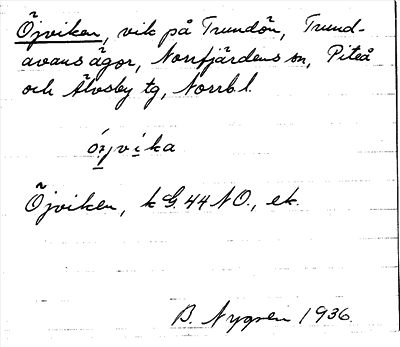 Öjviken, vik på Trundön, Trund-
avans ägor, Norrfjärdens sn, Piteå
och Älvsby tg, Norrb l.
Öjviken, k G. 44 NO., ek.
B. Nygren 1936.